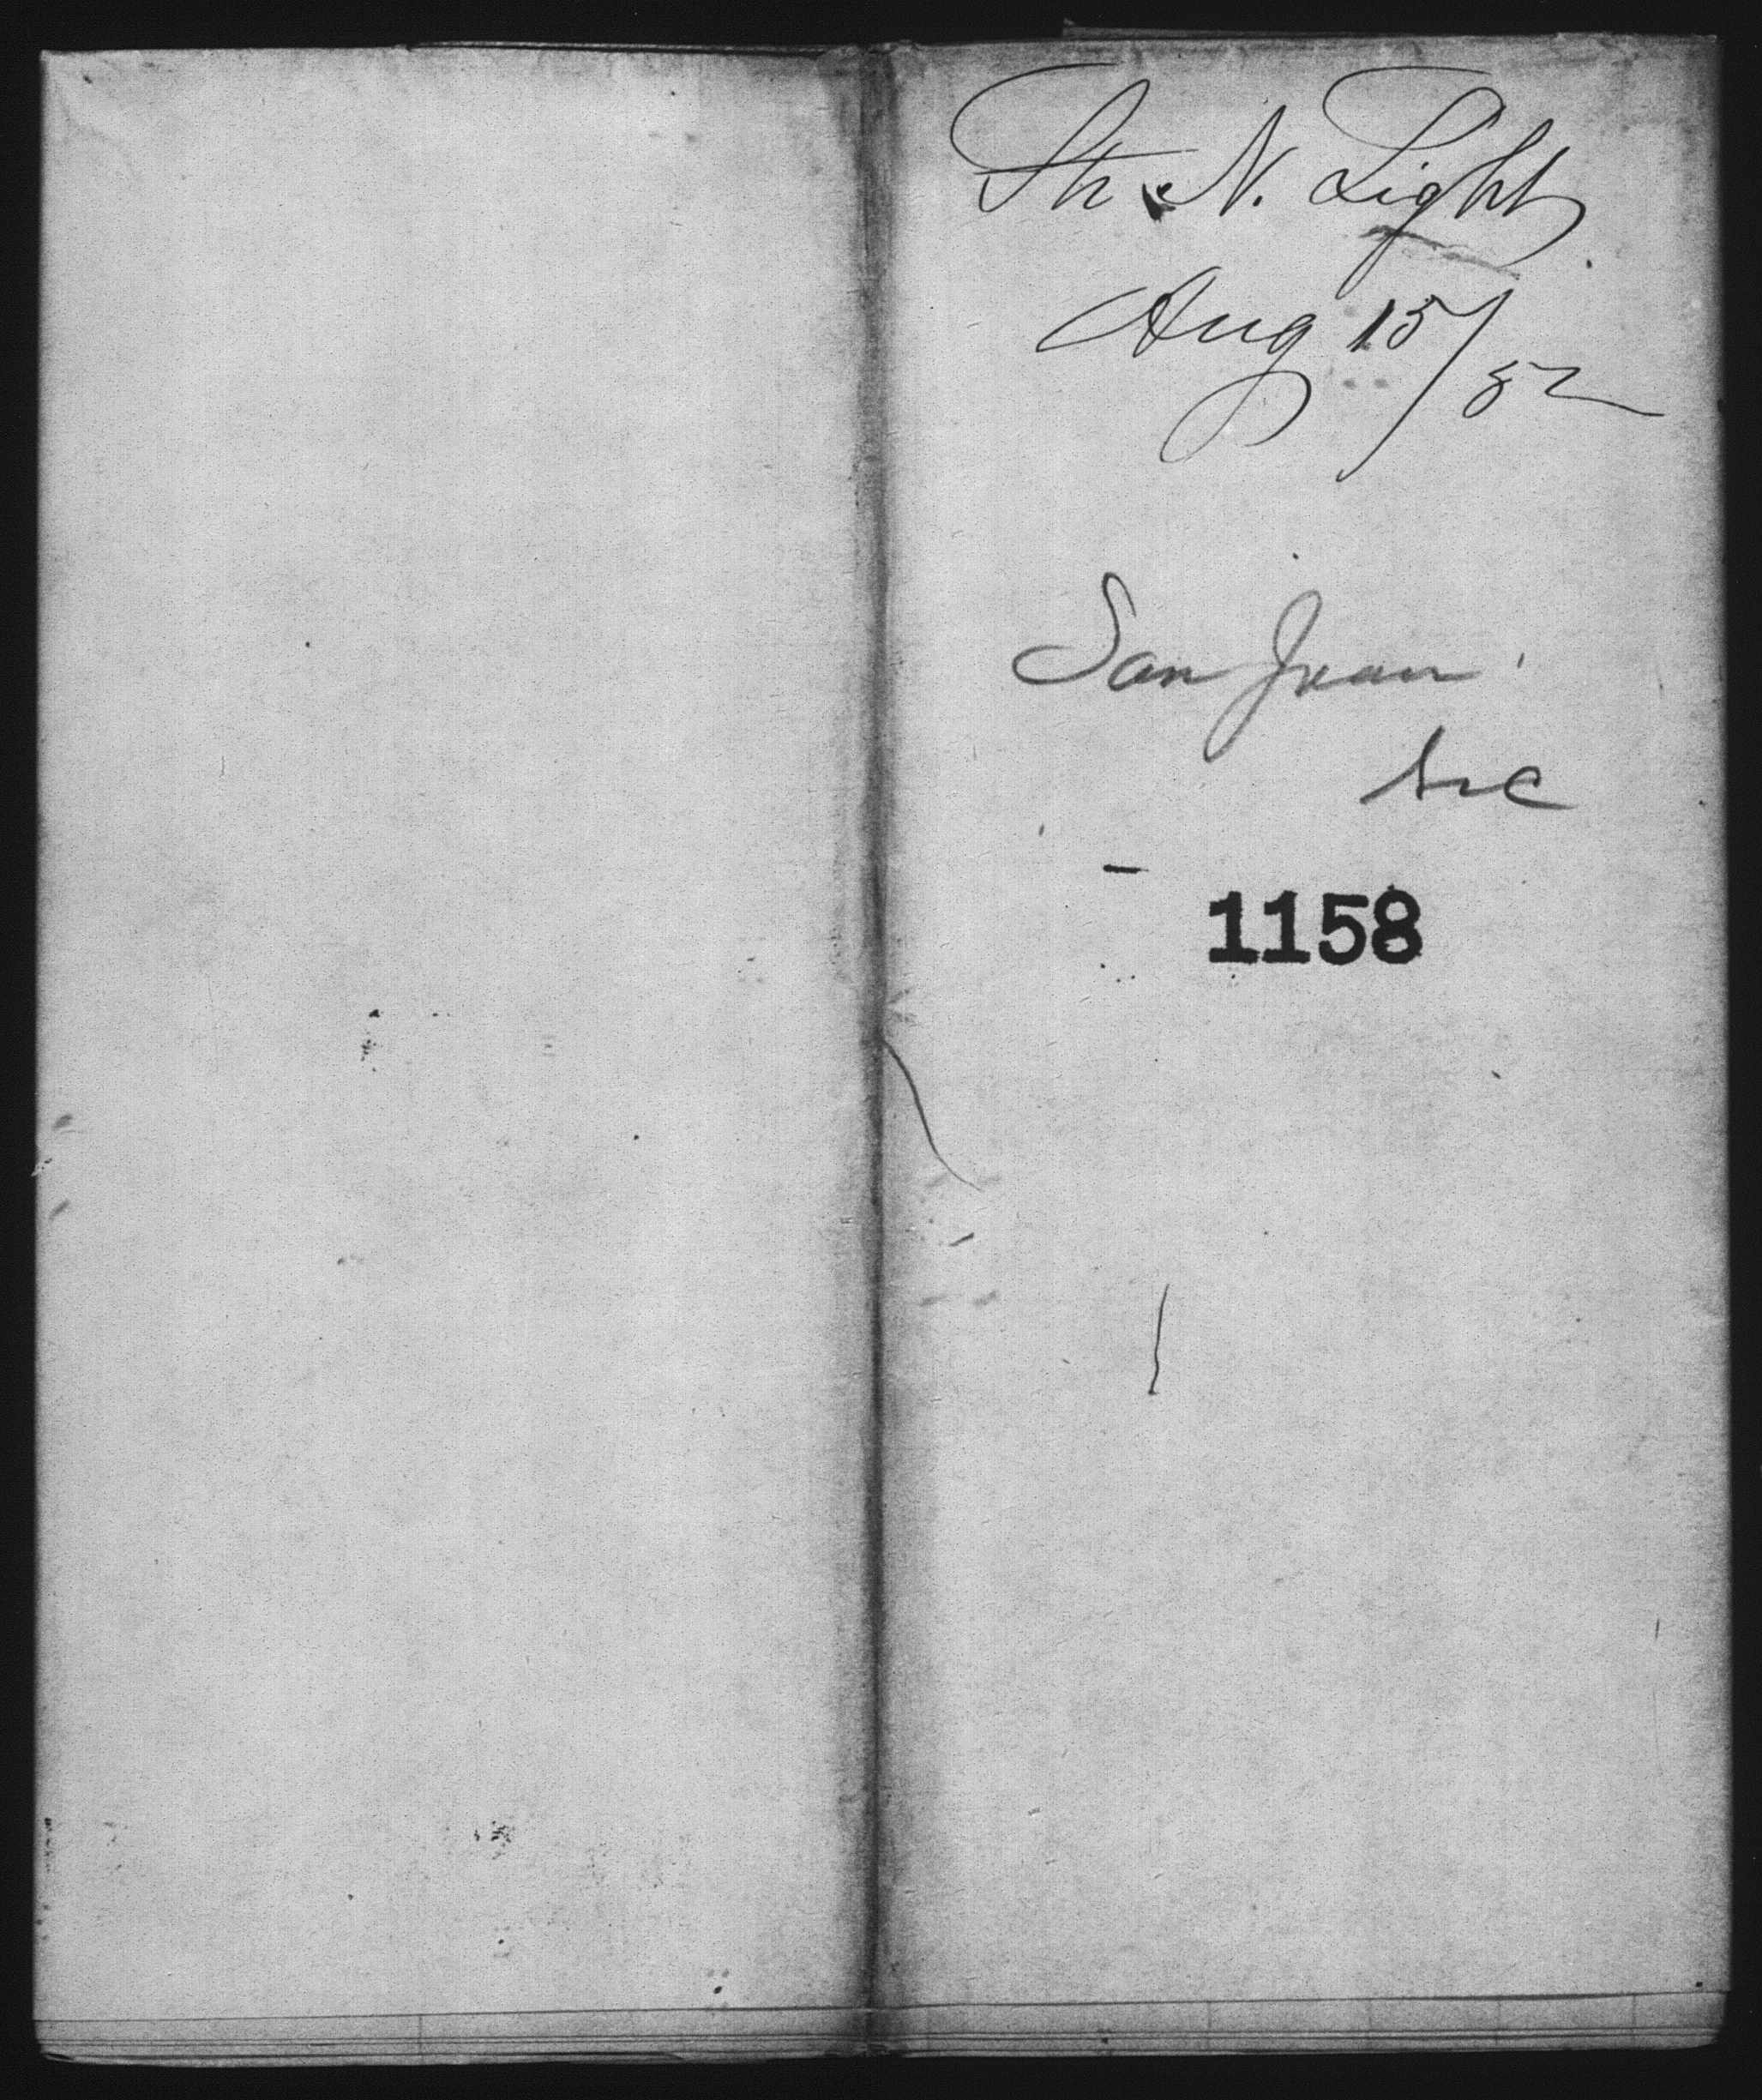 Str N. Light
Aug 15/52
San Juan
1158